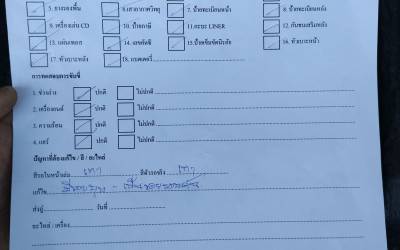 5. ยางรองพื้น 6.เสาอากาศวิทยุ 7. ป้ายทะเบียนหน้า 8. ป้ายทะเบียนหลัง
9. เครื่องเล่น CD 10. ป้ายภาษี 11.ตะขอ LINER 12. กันชนเสริมหลัง
13. แผ่นเพลท 14. เลขตัวถัง 15.ป้ายเข็มขัดนิรภัย 16. หัวเบาะหน้า
17. หัวเบาะหลัง 18. แบตเตอรี่
การทดสอบการขับขี่
1. ช่วงล่าง ปกติ ไม่ปกติ
2. เครื่องยนต์ ปกติ ไม่ปกติ
3. ความร้อน ปกติ ไม่ปกติ
4. แอร์ ปกติ ไม่ปกติ
ปัญหาที่ต้องแก้ไข / สี / อะไหล่
สีรถในหน้าเล่ม เทา สีตัวรถจริง เทา
แก้ไข
ส่งอู่ วันที่
อะไหล่ / เครื่อง